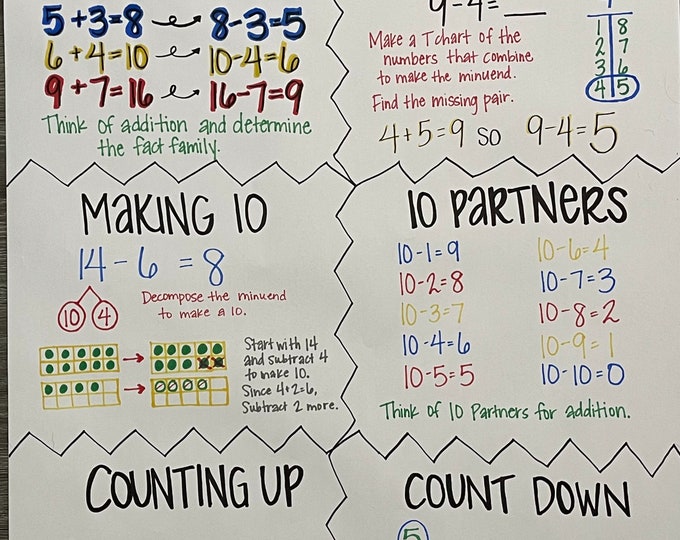 5+3=8 8-3=5
6+4=10 10-4=6
9+7=16 16-7=9
Think of addition and determine
the fact family.
9-4=
Make a T chart of the
numbers that combine
to make the minuend.
Find the missing pair.
1 8
2 7
3 6
4 5
4+5=9 so 9-4=5
Making 10
14-6=8
10 4
Decompose the minuend
to make a 10.
Start with 14
and subtract 4
to make 10.
Since 4+2=6,
Subtract 2 more.
10 Partners
10-1=9 10-6=4
10-2=8 10-7=3
10-3=7 10-8=2
10-4=6 10-9=1
10-5=5 10-10=0
Think of 10 Partners for addition.
Counting Up
Count Down
5